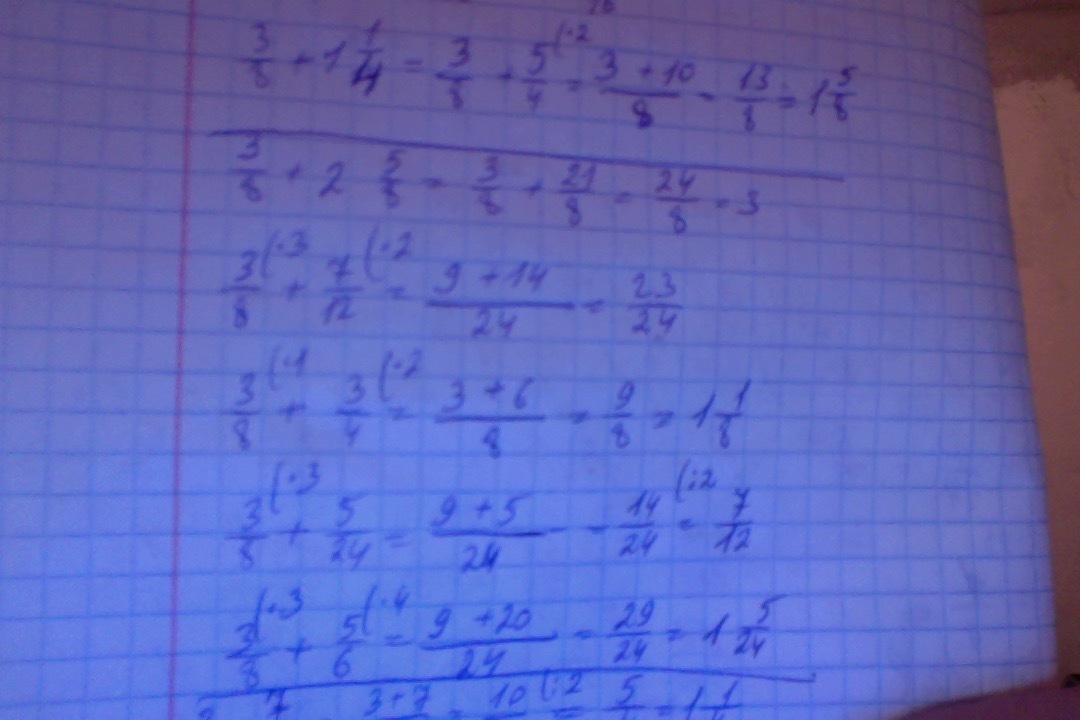 3/8 + 1 1/4 = 3/8 + 5/4 (·2 = (3 + 10)/8 = 13/8 = 1 5/8
3/8 + 2 5/8 = 3/8 + 21/8 = 24/8 = 3
3/8 (·3 + 7/12 (·2 = (9 + 14)/24 = 23/24
3/8 (·1 + 3/4 (·2 = (3 + 6)/8 = 9/8 = 1 1/8
3/8 (·3 + 5/24 = (9 + 5)/24 = 14/24 (:2 = 7/12
3/8 (·3 + 5/6 (·4 = (9 + 20)/24 = 29/24 = 1 5/24
3 7 3+7 = 10 (:2 = 5 = 1 1